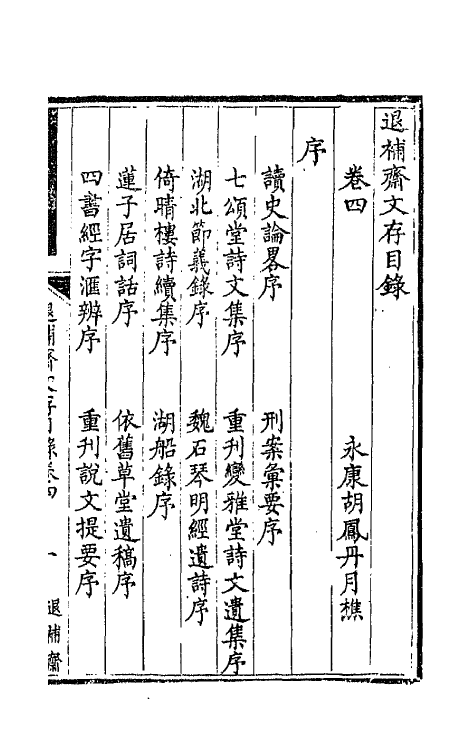 退補齋文存目錄
卷四
永康胡鳳丹月樵
序
讀史論畧序
刑案彙要序
七頌堂詩文集序
重刊變雅堂詩文遺集序
湖北節義錄序
魏石琴明經遺詩序
倚晴樓詩續集序
湖船錄序
蓮子居詞話序
依舊草堂遺稿序
四書經字滙辨序
重刊說文提要序
退補齋文存目錄卷四
一
退補齋